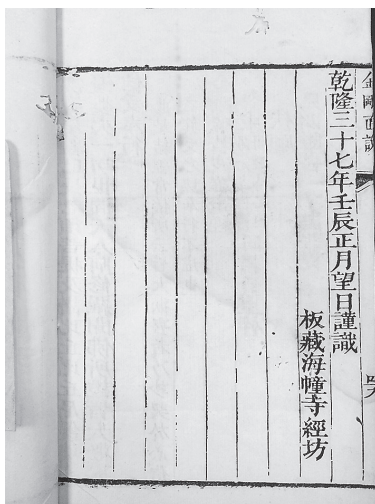 金剛直說
乾隆三十七年壬辰正月望日謹識
板藏海幢寺經坊